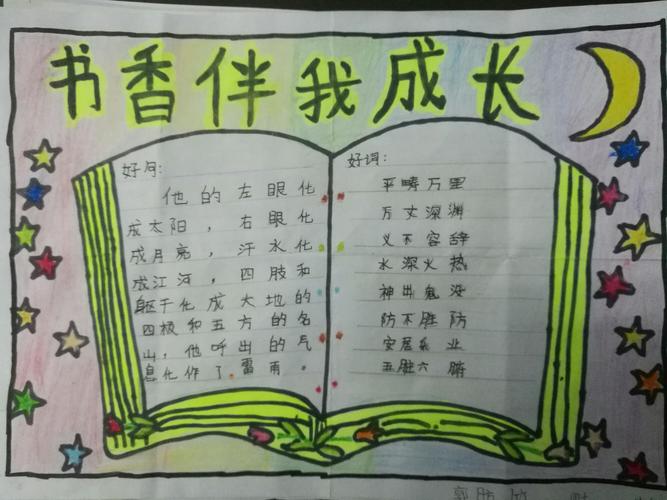 书香伴我成长
好句:
他的左眼化
成太阳，右眼化
成月亮，汗水化
成江河，四肢和
躯干化成大地的
四极和五方的名
山，他呼出的气
息化作了雷雨。
好词:
平畴万里
万丈深渊
义不容辞
水深火热
神出鬼没
防不胜防
安居乐业
五脏六腑